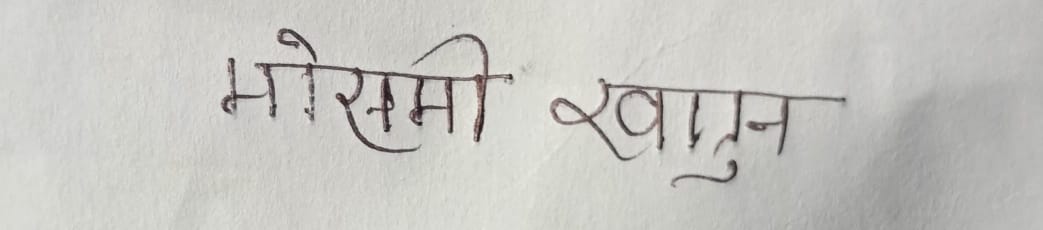 मोसमी खातुन